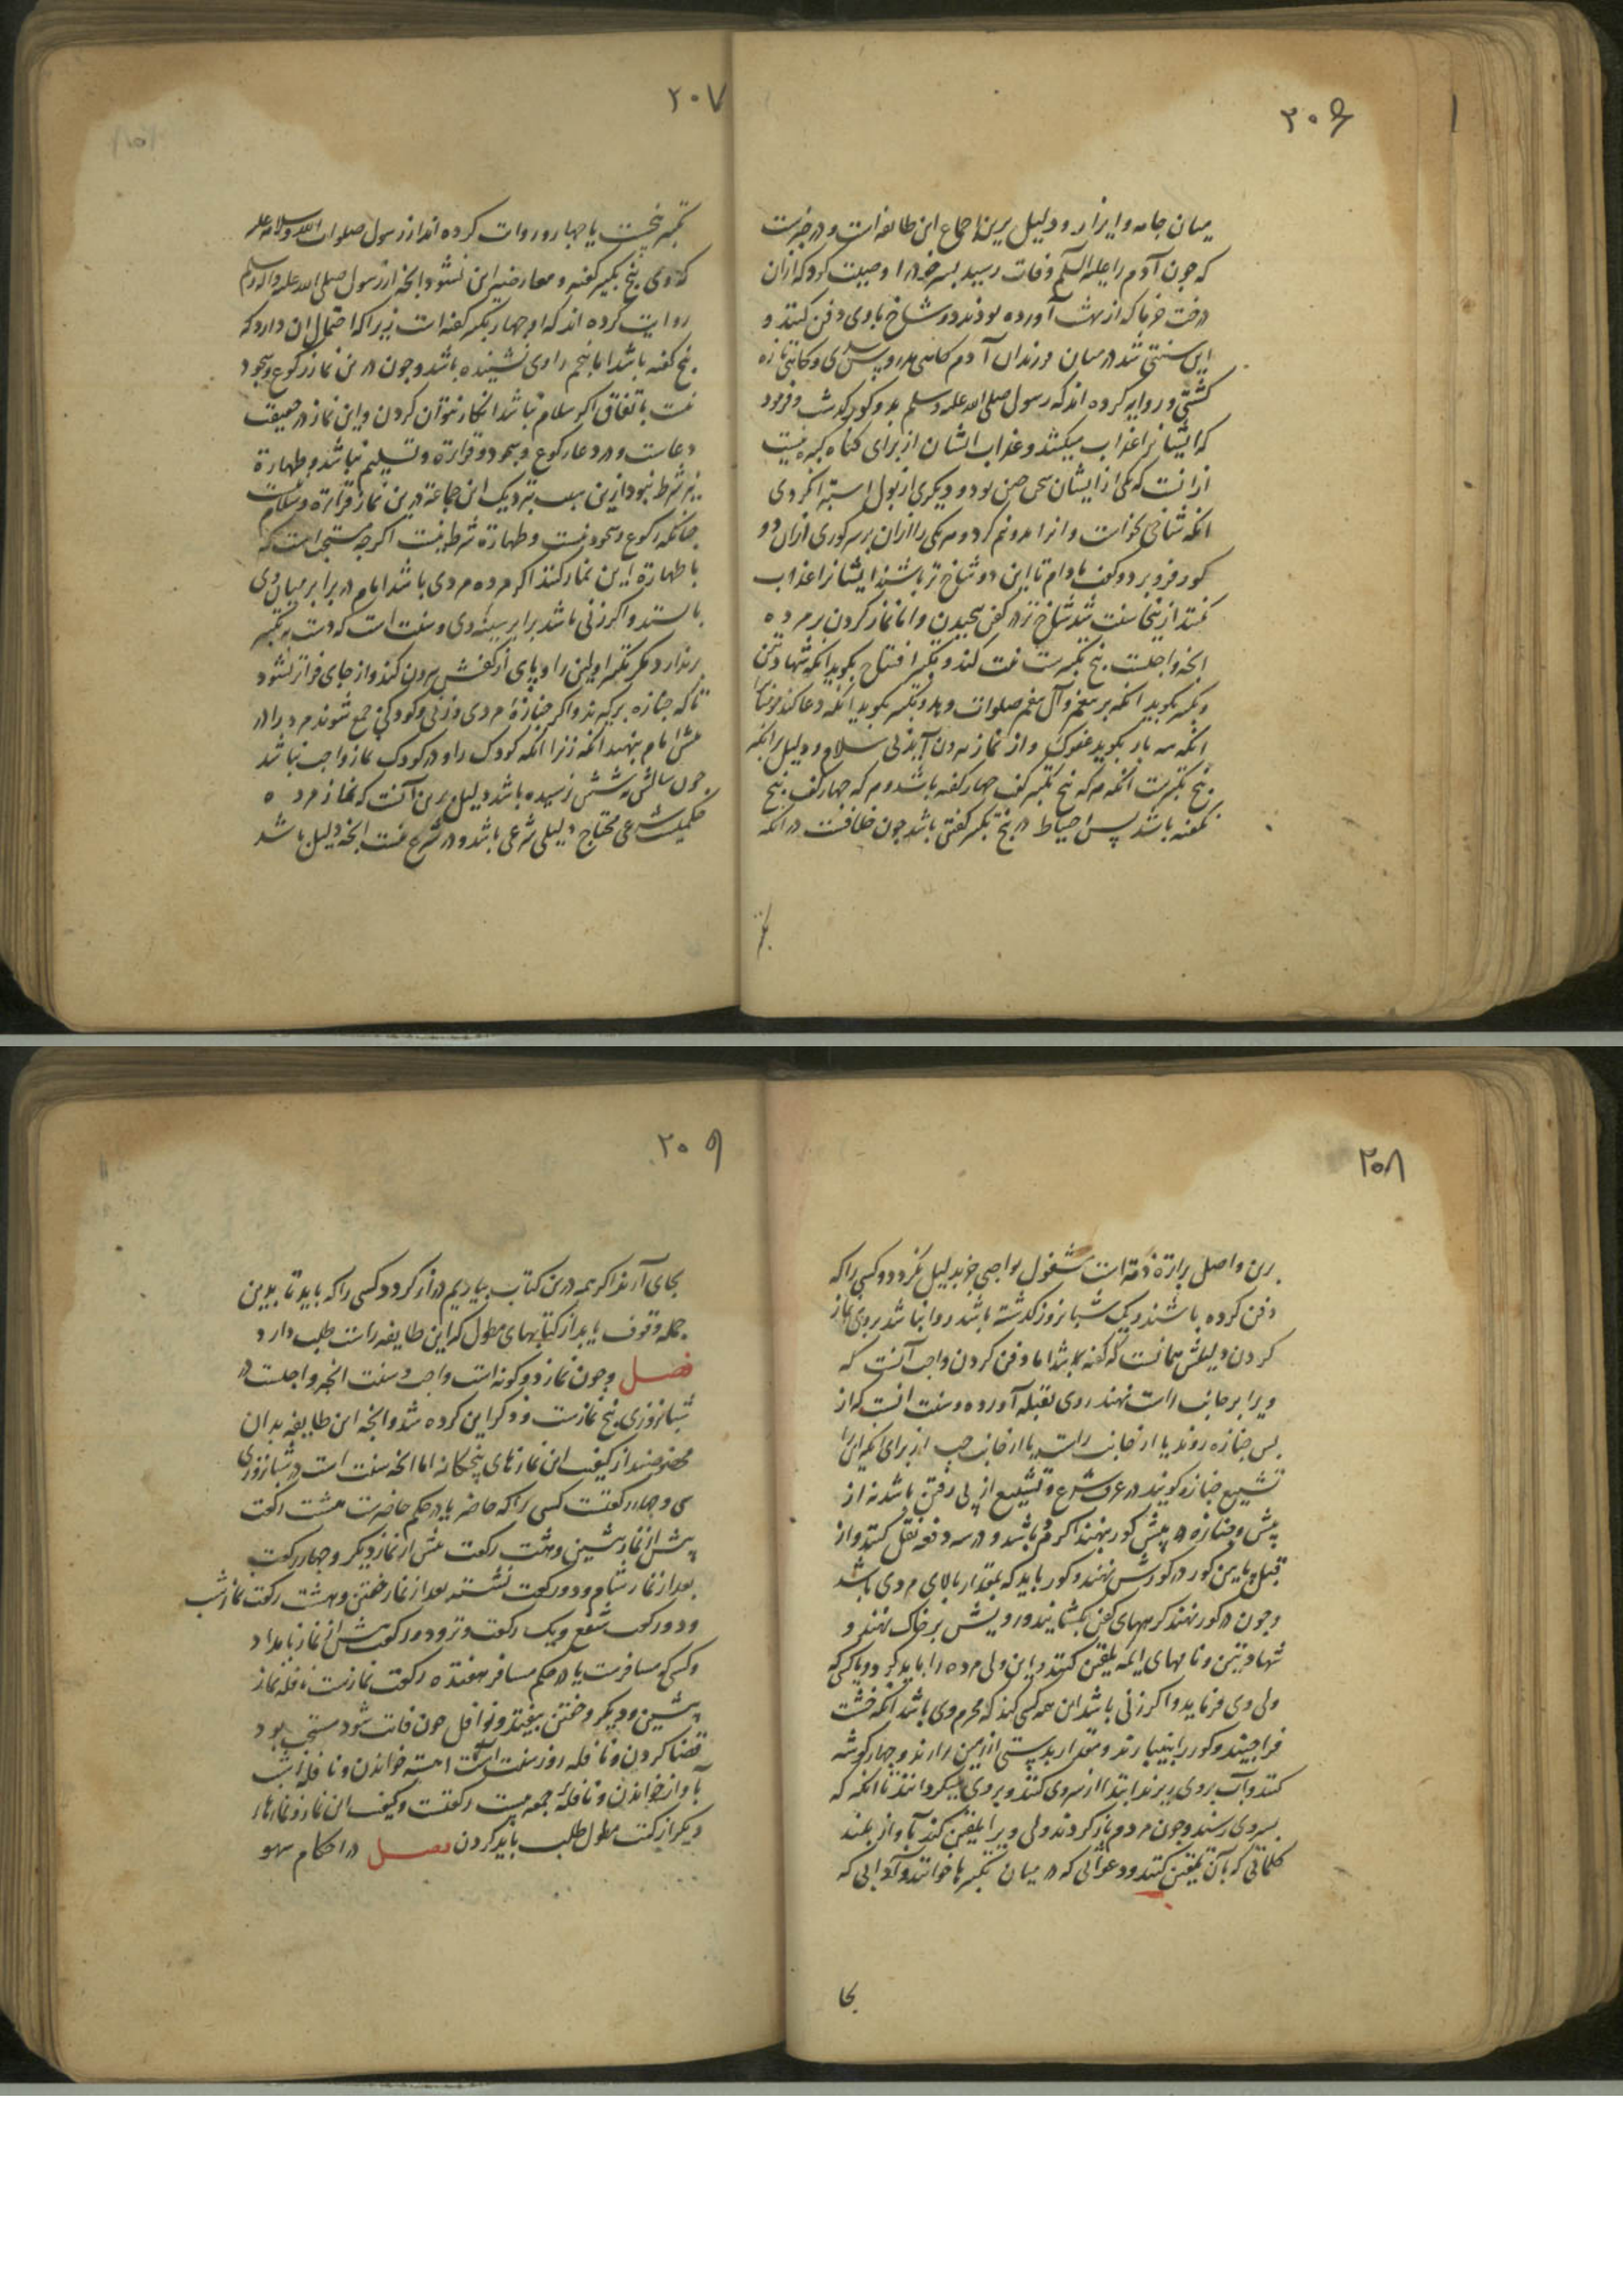 ۲۰۶
میان جامه و ایزار و دلیل برین اجماع این طائفه است و در خبرست
که چون آدم را علیه السلم وفات رسید پسر خود را وصیت کرد که از آن
درخت خرما که از بهشت آورده بودند دو شاخ با وی دفن کنند و
این سنتی شد در میان فرزندان آدم
و روایة کرده اند که رسول صلی الله علیه وسلم بدو کور بگذشت و فرمود
که ایشانرا عذاب میکنند و عذاب ایشان از برای کناه کبیره نیست
از آنست که یکی از ایشان سخن چین بود و دیکری از بول استبرا نکردی
انکه شاخی بخواست و انرا بدو نیم کرد و هر یکی را از آن بر سر کوری از آن دو
کور فرو برد و کفت مادام تا این دو شاخ تر باشند ایشانرا عذاب
نکنند ازینجا سنت شد شاخ تر در کفن پیچیدن و اما نماز کردن بر مرده
انچه واجبست پنج تکبیرست نیت کند و تکبیر افتتاح بکوید انکه شهادتین
و تکبیر بکوید انکه بر پیغمبر و آل پیغمبر صلوات دهد و تکبیر بکوید انکه دعا کند مؤمنانرا
انکه سه بار بکوید عفوک و از نماز بیرون آید بی سلام و دلیل برانکه
پنج تکبیرست انکه هر که پنج تکبیر کفت چهار کفته باشد و هر که چهار کفت پنج
نکفته باشد پس احتیاط در پنج تکبیر کفتن باشد چون خلافست در انکه
۲۰۷
تکبیر پنجست یا چهار و روایت کرده اند از رسول صلوات الله و سلامه علیه
که وی پنج تکبیر کفته و معارضه این نشود انچه از رسول صلی الله علیه و اله وسلم
روایت کرده اند که او چهار تکبیر کفته است زیرا که احتمال ان دارد که
پنج کفته باشد اما پنجم راوی نشنیده باشد و چون درین نماز رکوع و سجود
نیست باتفاق اکر سلام نباشد انکار نتوان کردن و این نماز در حقیقت
دعاست و در دعا رکوع و سجود و قراءة و تسلیم نباشد و طهارة
نیز شرط نبود ازین سبب نزدیک این جماعة درین نماز قراءة و سلام نیست
چنانکه رکوع و سجود نیست و طهارة شرط نیست اکرچه مستحب است که
با طهارة این نماز کنند اکر مرده مردی باشد امام در برابر میان وی
بایستد و اکر زنی باشد برابر سینه وی و سنت است که دست بهر تکبیر
برندارد مکر تکبیر اولین را و پای از کفش بیرون کند و از جای فراتر نشود
تا که جنازه برکیرند و اکر جنازۀ مردی و زنی و کودکی جمع شوند مرد را در
پیش امام بنهند انکه زنرا انکه کودک را و در کودک نماز واجب نباشد
چون سالش بشش نرسیده باشد دلیل برین آنست که نماز مرده
حکمیست شرعی محتاج دلیلی شرعی باشد و در شرع نیست انچه دلیل باشد
۲۰۸
برین و اصل براءة ذمة است مشغول بواجبی جز بدلیل نکردد و کسی را که
دفن کرده باشند و یک شبانروز کذشته باشد روا نباشد بروی نماز
کردن دلیلش همانست که کفته شد اما دفن کردن واجب آنست که
ویرا بر جانب راست نهند روی بقبله آورده و سنت انست که از
پس جنازه روند یا از جانب راست یا از جانب چپ از برای انکه این را
تشییع جنازه کویند در عرف شرع و تشییع از پی رفتن باشد نه از
پیش و جنازه در پیش کور بنهند اکر مرد باشد و در سه دفعه نقل کنند و از
قبل پایین کور در کورش نهند و کور باید که بمقدار بالای مردی باشد
و چون در کور نهند کرههای کفن بکشایند و رویش بر خاک نهند و
شهادتین و نامهای ایمه تلقین کنند و این ولی مرده را باید کرد و یا کسی که
ولی وی فرماید و اکر زنی باشد این همه کسی کند که محرم وی باشد انکه خشت
فرا چینند و کور را بینبارند و مقدار بدستی از زمین برارند و چهار کوشه
کنند و آب بروی ریزند ابتدا از سروی کنند و بروی میکردانند تا انکه که
بسروی رسند و چون مردم باز کردند ولی ویرا تلقین کند بآواز بلند
کلماتی که بآن تلقین کنند و دعوانی که در میان تکبیرها خوانند و آدابی که
بجا
۲۰۹
بجای آرند اکر همه درین کتاب بیاریم دراز کردد کسی را که باید تا بدین
جمله وقوف یابد از کتابهای مطول که این طایفه راست طلب دارد
فصل و چون نماز دو کونه است واجب و سنت انچه واجبست در
شبانروزی پنج نمازست و ذکر این کرده شد و انچه این طایفه بدان
مخصوصند از کیفیت این نمازهای پنجکانه اما انچه سنت است در شبانروزی
سی و چهار رکعتست کسی را که حاضر یا در حکم حاضرست هشت رکعت
پیش از نماز پیشین و هشت رکعت پیش از نماز دیکر و چهار رکعت
بعد از نماز شام و دو رکعت نشسته بعد از نماز خفتن و هشت رکعت نماز شب
و دو رکعت شفع و یک رکعت وتر و دو رکعت پیش از نماز بامداد
و کسی که مسافرست یا در حکم مسافر هفتده رکعت نمازست نافله نماز
پیشین و دیکر و خفتن بیفتد و نوافل چون فایت شود مستحب بود
قضا کردن و نافله روز سنت است اهسته خواندن و نافله شب
بآواز خواندن و نافلۀ جمعه بیست رکعتست و کیفیت این نماز و نمازهاء
دیکر از کتب مطول طلب باید کردن فصل در احکام سهو